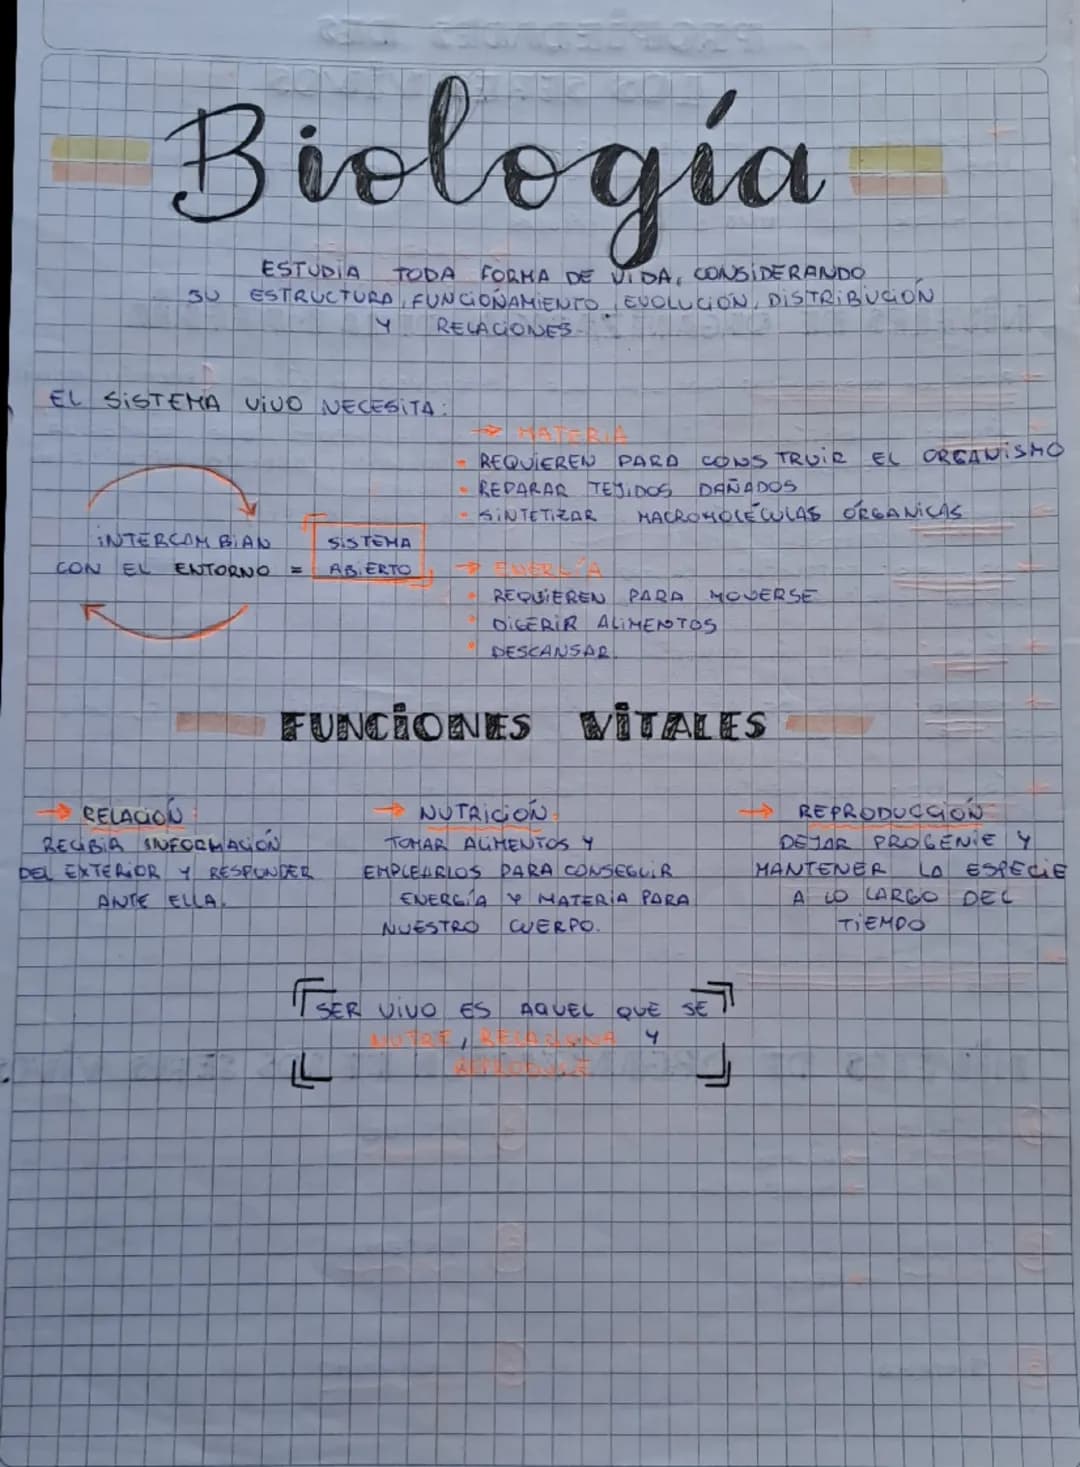 Biología
ESTUDIA TODA FORMA DE VIDA, CONSIDERANDO
SU ESTRUCTURA, FUNCIONAMIENTO, EVOLUCIÓN, DISTRIBUCIÓN
Y RELACIONES.
EL SISTEMA VIVO NECESITA:
→ MATERIA
- REQUIEREN PARA CONSTRUIR EL ORGANISMO
- REPARAR TEJIDOS DAÑADOS
- SINTETIZAR MACROMOLÉCULAS ÓRGANICAS
INTERCAMBIAN
CON EL ENTORNO =
SISTEMA
ABIERTO
→ ENERGÍA
• REQUIEREN PARA MOVERSE
• DIGERIR ALIMENTOS
• DESCANSAR.
FUNCIONES VITALES
→ RELACIÓN:
RECIBIR INFORMACIÓN
DEL EXTERIOR Y RESPONDER
ANTE ELLA.
→ NUTRICIÓN:
TOMAR ALIMENTOS Y
EMPLEARLOS PARA CONSEGUIR
ENERGÍA Y MATERIA PARA
NUESTRO CUERPO.
→ REPRODUCCIÓN:
DEJAR PROGENIE Y
MANTENER LA ESPECIE
A LO LARGO DEL
TIEMPO
SER VIVO ES AQUEL QUE SE
NUTRE, RELACIONA Y
REPRODUCE